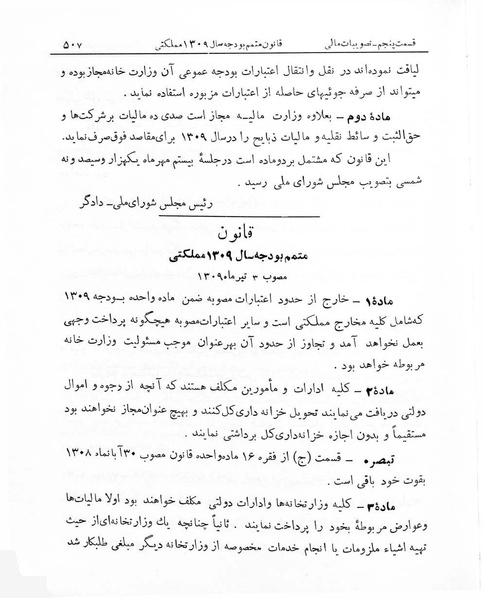 قسمت پنجم - تصویبات مالی قانون متمم بودجه سال ۱۳۰۹ مملکتی ۵۰۷
لیاقت نموده‌اند در نقل و انتقال اعتبارات بودجه عمومی آن وزارت خانه مجاز بوده و
میتواند از صرفه جوئیهای حاصله از اعتبارات مزبوره استفاده نماید .
مادهٔ دوم - بعلاوه وزارت مالیه مجاز است صدی ده مالیات بر شرکت‌ها و
حق‌الثبت و سائط نقلیه و مالیات ذبایح را در سال ۱۳۰۹ برای مقاصد فوق صرف نماید.
این قانون که مشتمل بر دو ماده است در جلسهٔ بیستم مهر ماه یکهزار و سیصد و نه
شمسی بتصویب مجلس شورای ملی رسید .
رئیس مجلس شورای ملی - دادگر
قانون
متمم بودجه سال ۱۳۰۹ مملکتی
مصوب ۳ تیر ماه ۱۳۰۹
مادهٔ ۱ - خارج از حدود اعتبارات مصوبه ضمن مادهٔ واحده بودجه ۱۳۰۹
که شامل کلیه مخارج مملکتی است و سایر اعتبارات مصوبه هیچگونه پرداخت وجهی
بعمل نخواهد آمد و تجاوز از حدود آن بهر عنوان موجب مسئولیت وزارت خانه
مربوطه خواهد بود .
مادهٔ ۲ - کلیه ادارات و مأمورین مکلف هستند که آنچه از وجوه و اموال
دولتی دریافت می نمایند تحویل خزانه داری کل کنند و بهیچ عنوان مجاز نخواهند بود
مستقیماً و بدون اجازه خزانه داری کل برداشتی نمایند .
تبصره - قسمت (ج) از فقره ۱۶ ماده واحده قانون مصوب ۳۰ آبانماه ۱۳۰۸
بقوت خود باقی است .
مادهٔ ۳ - کلیه وزارتخانه‌ها و ادارات دولتی مکلف خواهند بود اولا مالیات‌ها
و عوارض مربوطهٔ بخود را پرداخت نمایند . ثانیاً چنانچه یك وزارتخانه‌ای از حیث
تهیه اشیاء ملزومات یا انجام خدمات مخصوصه از وزارتخانه دیگر مبلغی طلبکار شد